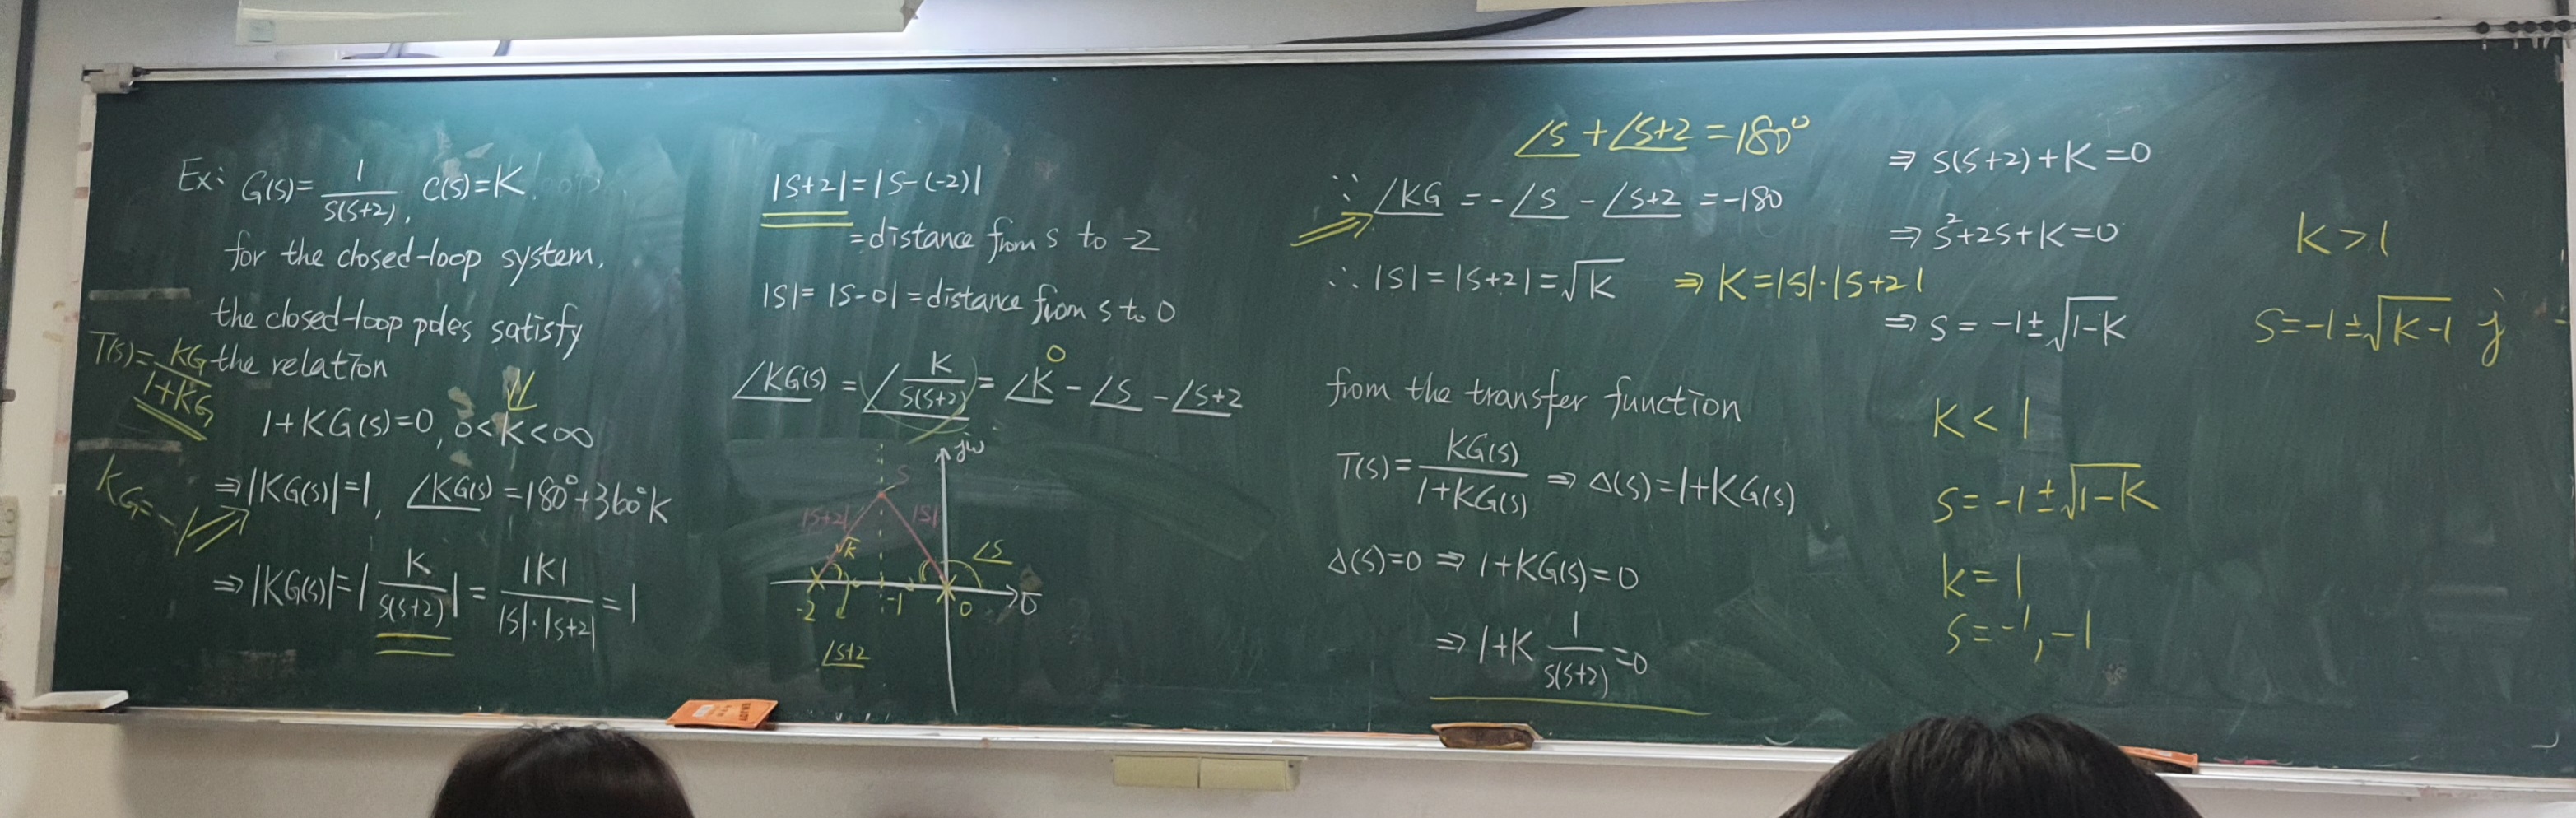 Ex: G(s)=1/s(s+2), C(s)=K
for the closed-loop system,
the closed-loop poles satisfy
the relation
T(s)=KG/1+KG
1+KG(s)=0, 0<K<∞
KG=-1
⇒|KG(s)|=1, ∠KG(s)=180°+360°K
⇒|KG(s)|=|K/s(s+2)|=|K|/|s|·|s+2|=1
|s+2|=|s-(-2)|
=distance from s to -2
|s|=|s-0|=distance from s to 0
∠KG(s)=∠(K/s(s+2))=∠K-∠s-∠s+2
0
jω
s
|s+2| |s|
√K ∠s
-2 -1 0 σ
∠s+2
∠s+∠s+2=180°
∵ ∠KG=-∠s-∠s+2=-180
∴ |s|=|s+2|=√K ⇒K=|s|·|s+2|
from the transfer function
T(s)=KG(s)/1+KG(s) ⇒Δ(s)=1+KG(s)
Δ(s)=0 ⇒1+KG(s)=0
⇒1+K 1/s(s+2)=0
⇒s(s+2)+K=0
⇒s²+2s+K=0
⇒s=-1±√1-K
K<1
s=-1±√1-K
k=1
s=-1,-1
K>1
s=-1±√K-1 j